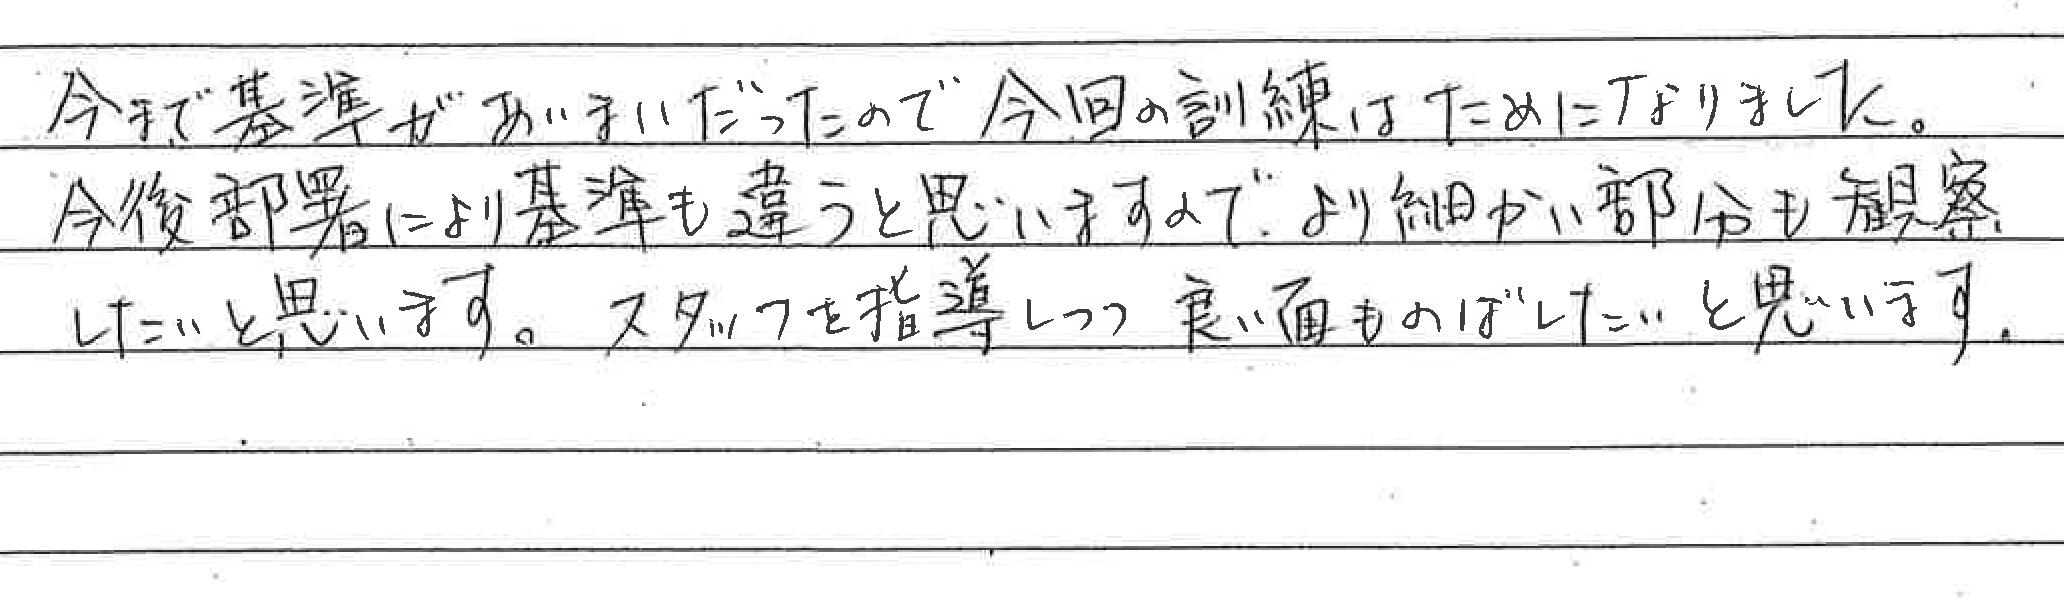 今まで基準があいまいだったので今回の訓練はためになりました。
今後部署により基準も違うと思いますので、より細かい部分も観察
したいと思います。スタッフを指導しつつ良い面ものばしたいと思います。